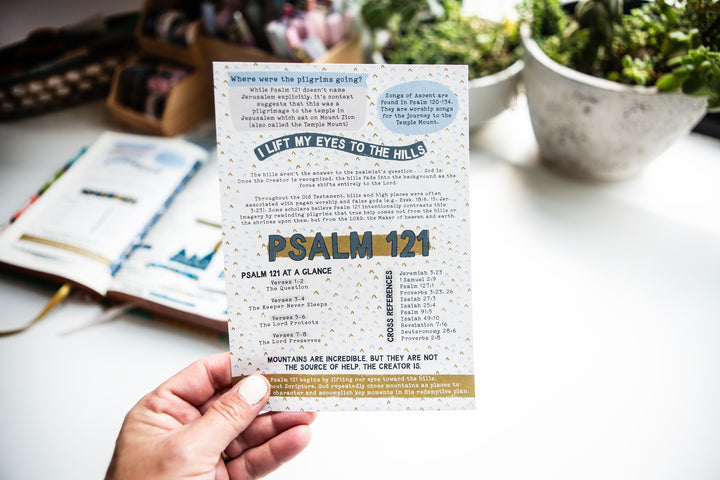 Where were the pilgrims going?
While Psalm 121 doesn't name
Jerusalem explicitly, it's context
suggests that this was a
pilgrimage to the temple in
Jerusalem which sat on Mount Zion
(also called the Temple Mount)
Songs of Ascent are
found in Psalm 120-134.
They are worship songs
for the journey to the
Temple Mount.
I LIFT MY EYES TO THE HILLS
The hills weren't the answer to the psalmist's question . . . God is.
Once the Creator is recognized, the hills fade into the background as the
focus shifts entirely to the Lord.
Throughout the Old Testament, hills and high places were often
associated with pagan worship and false gods (e.g., Ezek. 18:6, 15; Jer.
3:23). Some scholars believe Psalm 121 intentionally contrasts this
imagery by reminding pilgrims that true help comes not from the hills or
the shrines upon them, but from the LORD, the Maker of heaven and earth.
PSALM 121
PSALM 121 AT A GLANCE
Verses 1-2
The Question
Verses 3-4
The Keeper Never Sleeps
Verses 5-6
The Lord Protects
Verses 7-8
The Lord Preserves
CROSS REFERENCES
Jeremiah 3:23
1 Samuel 2:9
Psalm 127:1
Proverbs 3:23, 26
Isaiah 27:3
Isaiah 25:4
Psalm 91:5
Isaiah 49:10
Revelation 7:16
Deuteronomy 28:6
Proverbs 2:8
MOUNTAINS ARE INCREDIBLE, BUT THEY ARE NOT
THE SOURCE OF HELP. THE CREATOR IS.
Psalm 121 begins by lifting our eyes toward the hills.
Scripture, God repeatedly chose mountains as places to
character and accomplish key moments in His redemptive plan.